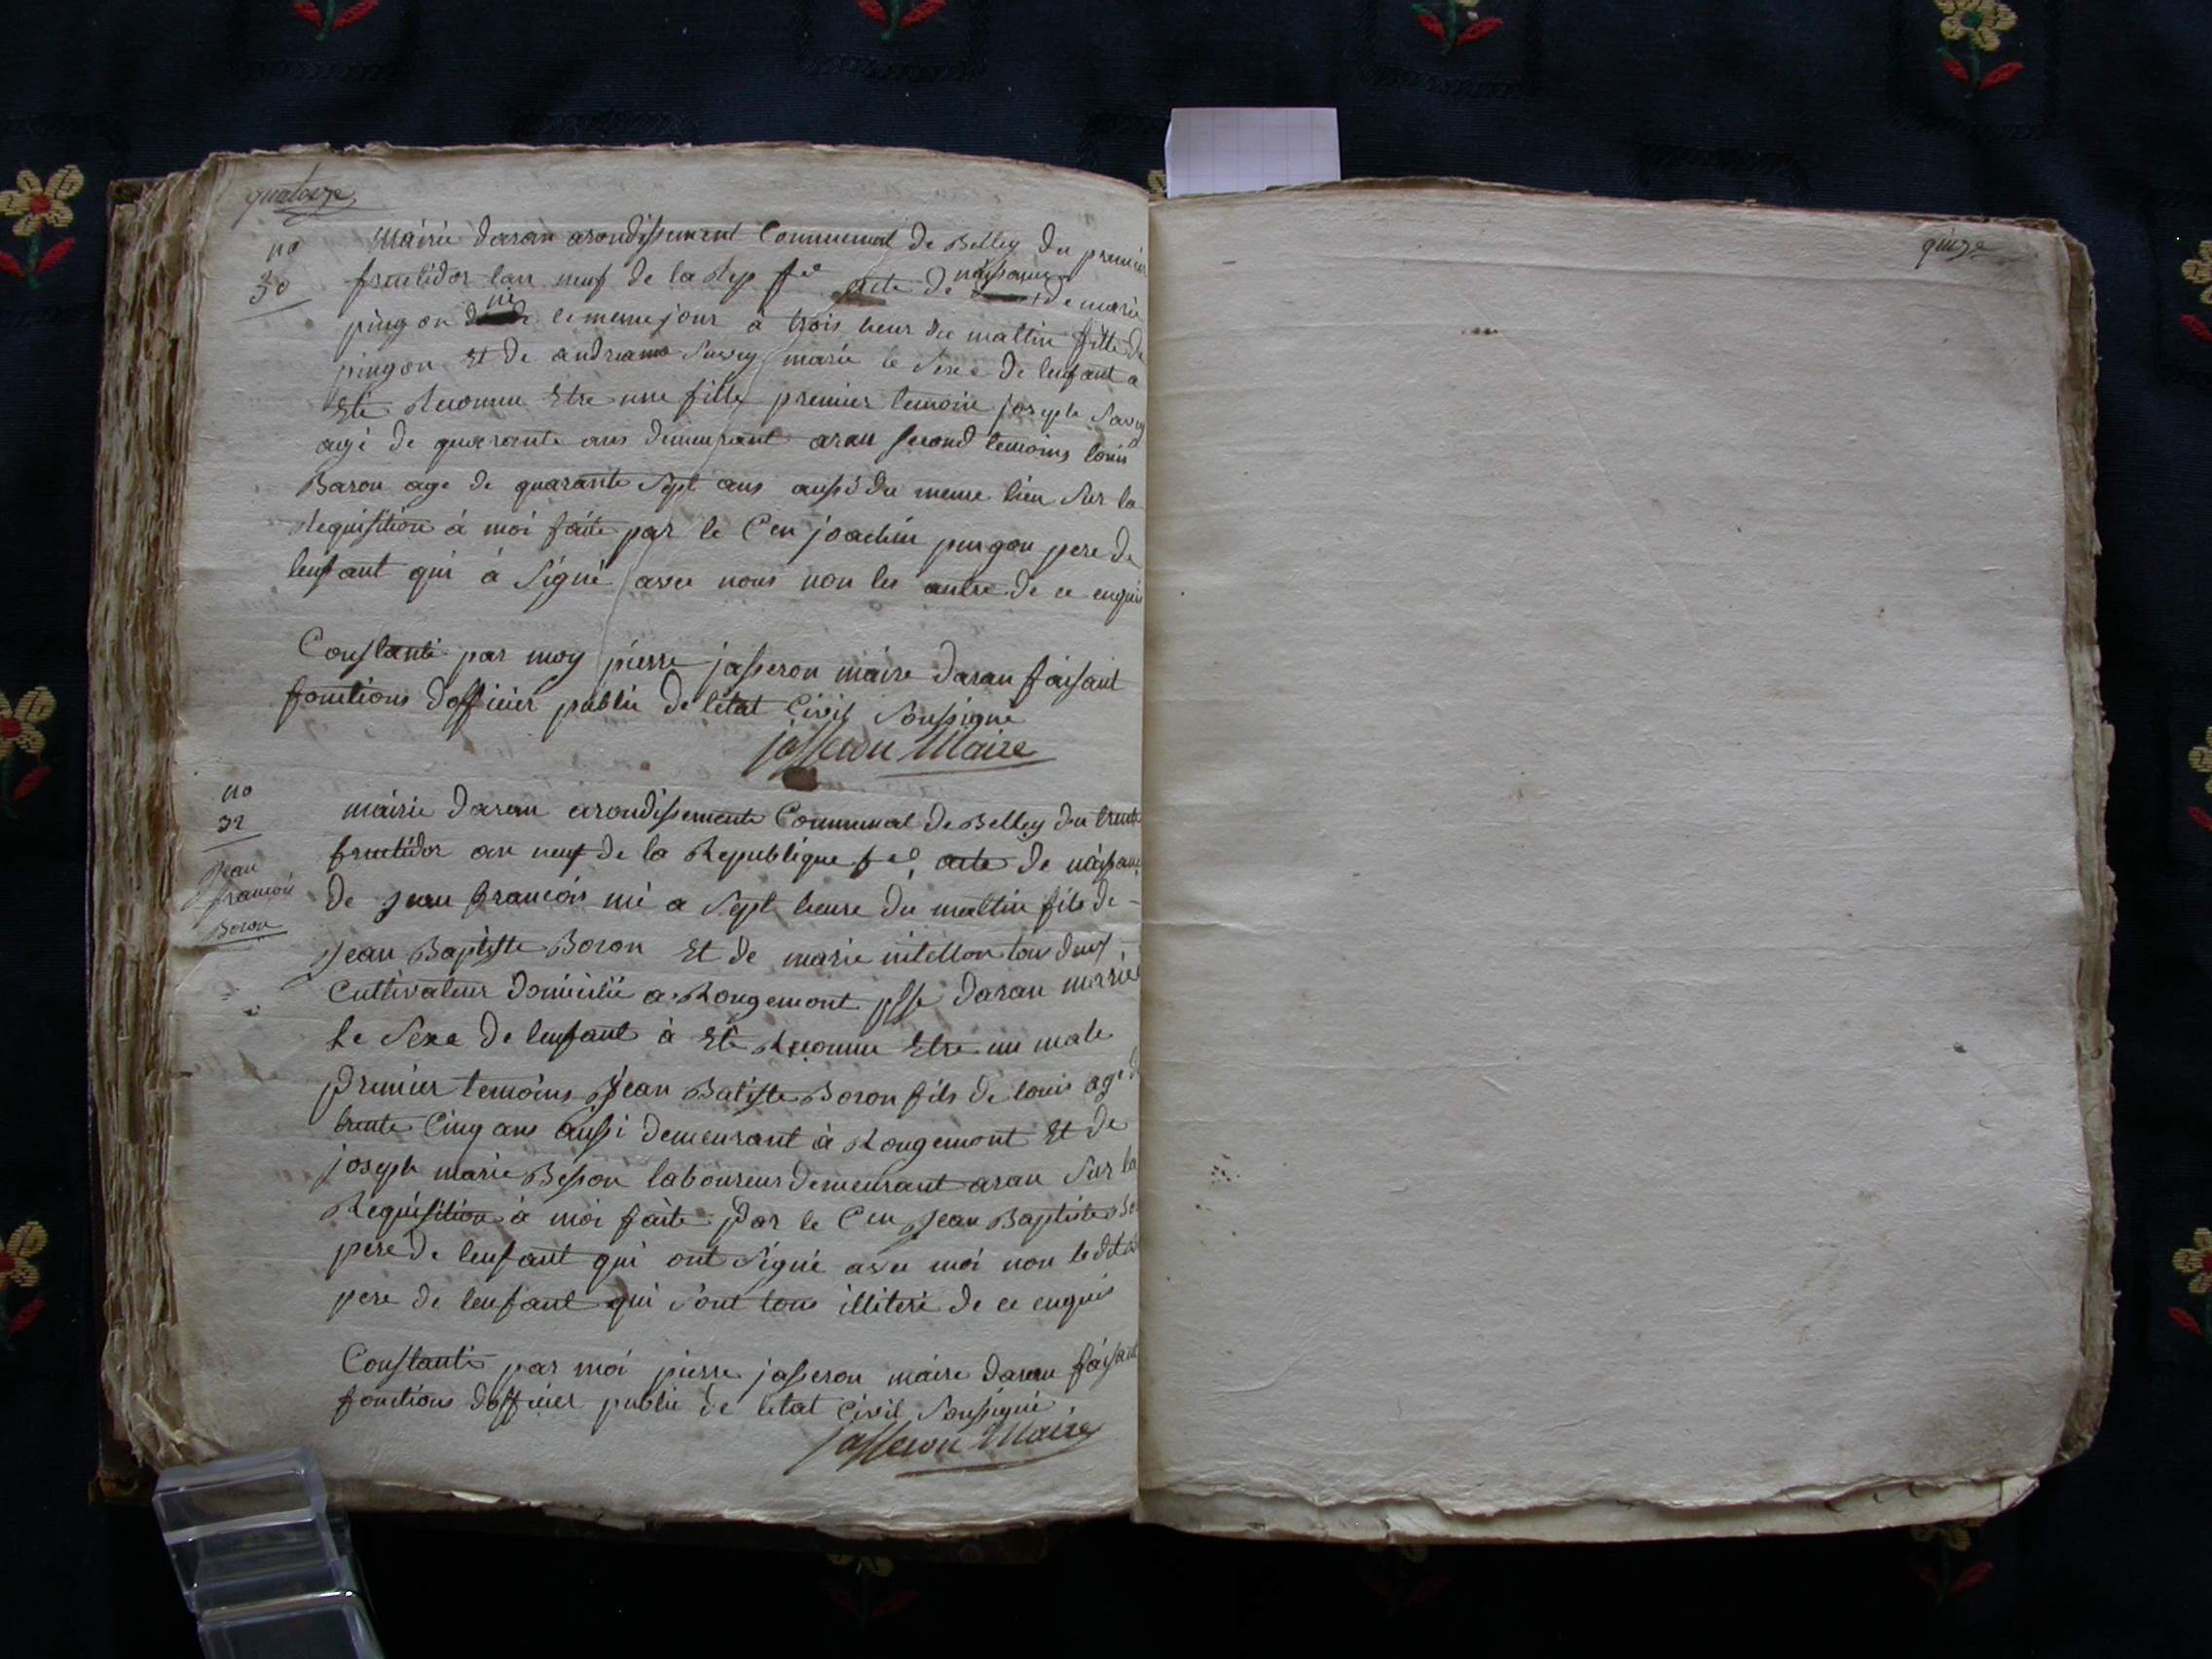 quatorze
no
30
Mairie daran arondissement Communal de Belley du premier
fructidor lan neuf de la Rep fse acte de naissance de marie
pingon né le meme jour à trois heur du mattin fille de
pingon Et de andreama Savey marié le Sexe de lenfant a
Eté Reconnu Etre une fille premier temoin joseph Savey
agé de quarante ans demeurant aran second temoins louis
Baron age de quarante Sept ans aussi du meme lieu Sur la
Requisition à moi faite par le Cen joachin pingon pere de
lenfant qui à Signé avec nous non les autre de ce enquis
Constanté par moy pierre jasseron maire daran faisant
fonctions dofficier public de létat Civil Soussigné
jasseron Maire
no
32
Jean
francois
Boron
mairie daran arondissement Communal de Belley du trente
fructidor an neuf de la Republique fse, acte de naissance
de jean francois né a Sept heure du mattin fils de
Jean Baptiste Boron Et de marie tous deux
Cultivateur domicilié a Rougemont psse daran marié
le Sexe de lenfant à Eté Reconnu Etre un male
premier temoins Jean Batiste Boron fils de louis agé de
trente Cinq ans aussi demeurant à Rougemont Et de
joseph marie Besson laboureur demeurant aran Sur la
Requisition à moi faite par le Cen Jean Baptiste
pere de lenfant qui ont Signé avec moi non ledit
pere de lenfant qui sont tous illiteré de ce enquis
Constanté par moi pierre jasseron maire daran faisant
fonctions dofficier public de létat Civil Soussigné
jasseron Maire
quinze